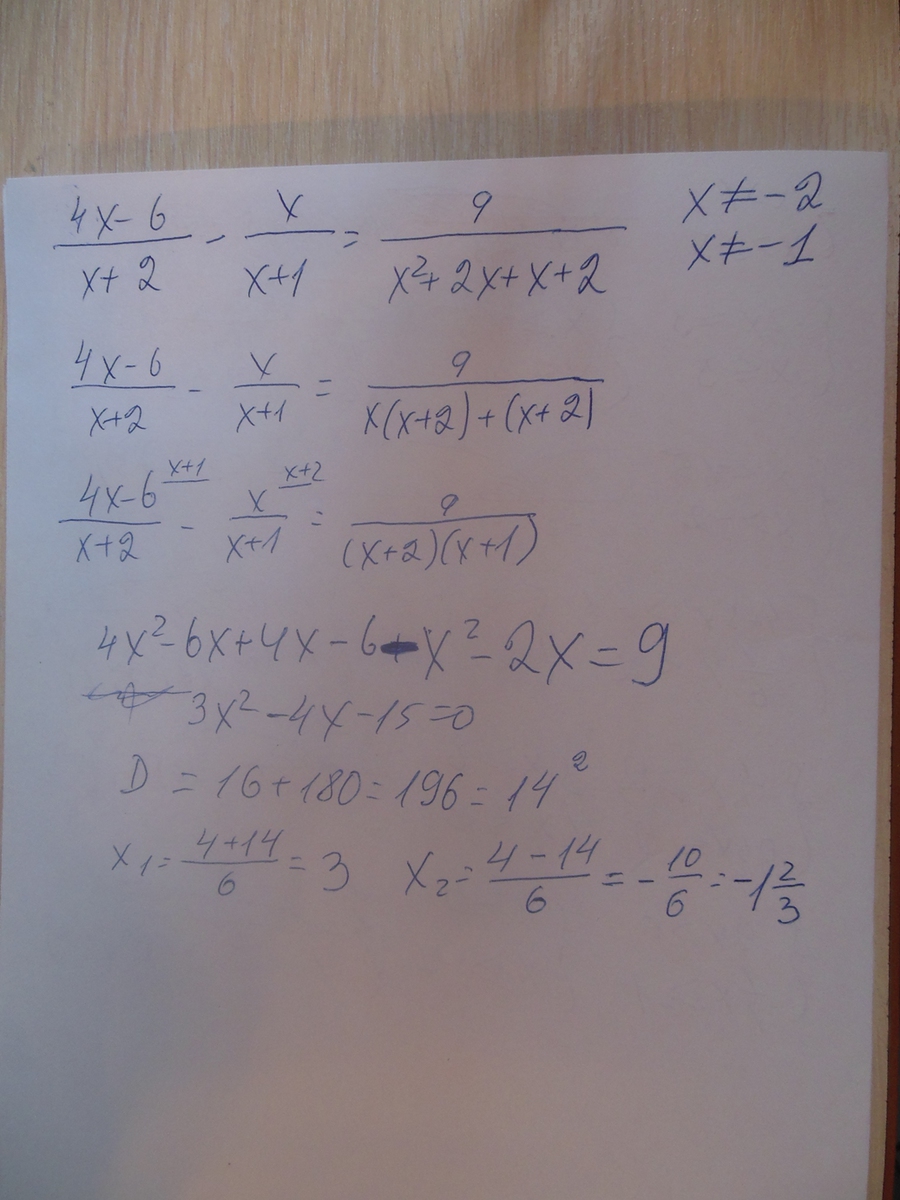 (4x-6)/(x+2) - x/(x+1) = 9/(x²+2x+x+2)   x≠-2
x≠-1
(4x-6)/(x+2) - x/(x+1) = 9/(x(x+2)+(x+2))
(4x-6)/(x+2) ^(x+1) - x/(x+1) ^(x+2) = 9/((x+2)(x+1))
4x²-6x+4x-6-x²-2x=9
3x²-4x-15=0
D = 16+180=196=14²
x₁=(4+14)/6=3   x₂=(4-14)/6=-10/6=-1 2/3